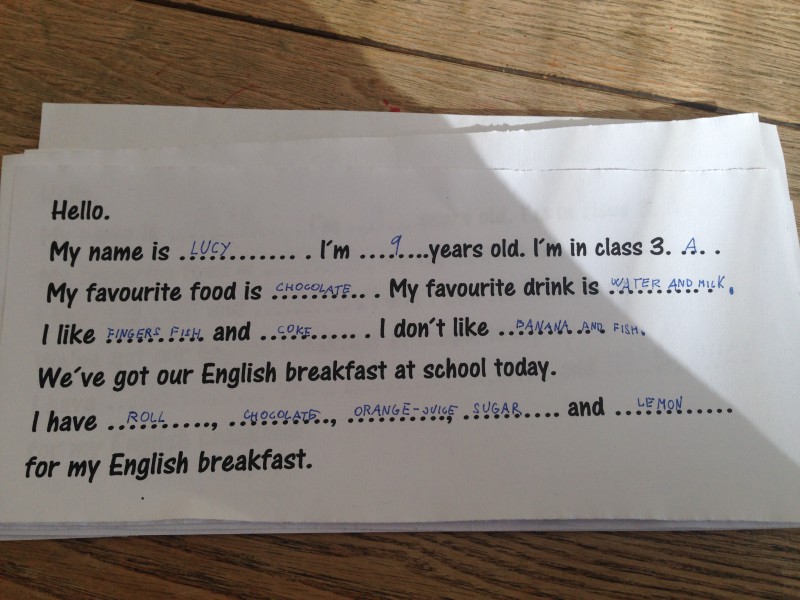 Hello.
My name is LUCY. I'm 9 years old. I'm in class 3. A.
My favourite food is CHOCOLATE. My favourite drink is WATER AND MILK.
I like FINGERS FISH and COKE. I don't like BANANA AND FISH.
We've got our English breakfast at school today.
I have ROLL, CHOCOLATE, ORANGE-JUICE, SUGAR and LEMON
for my English breakfast.